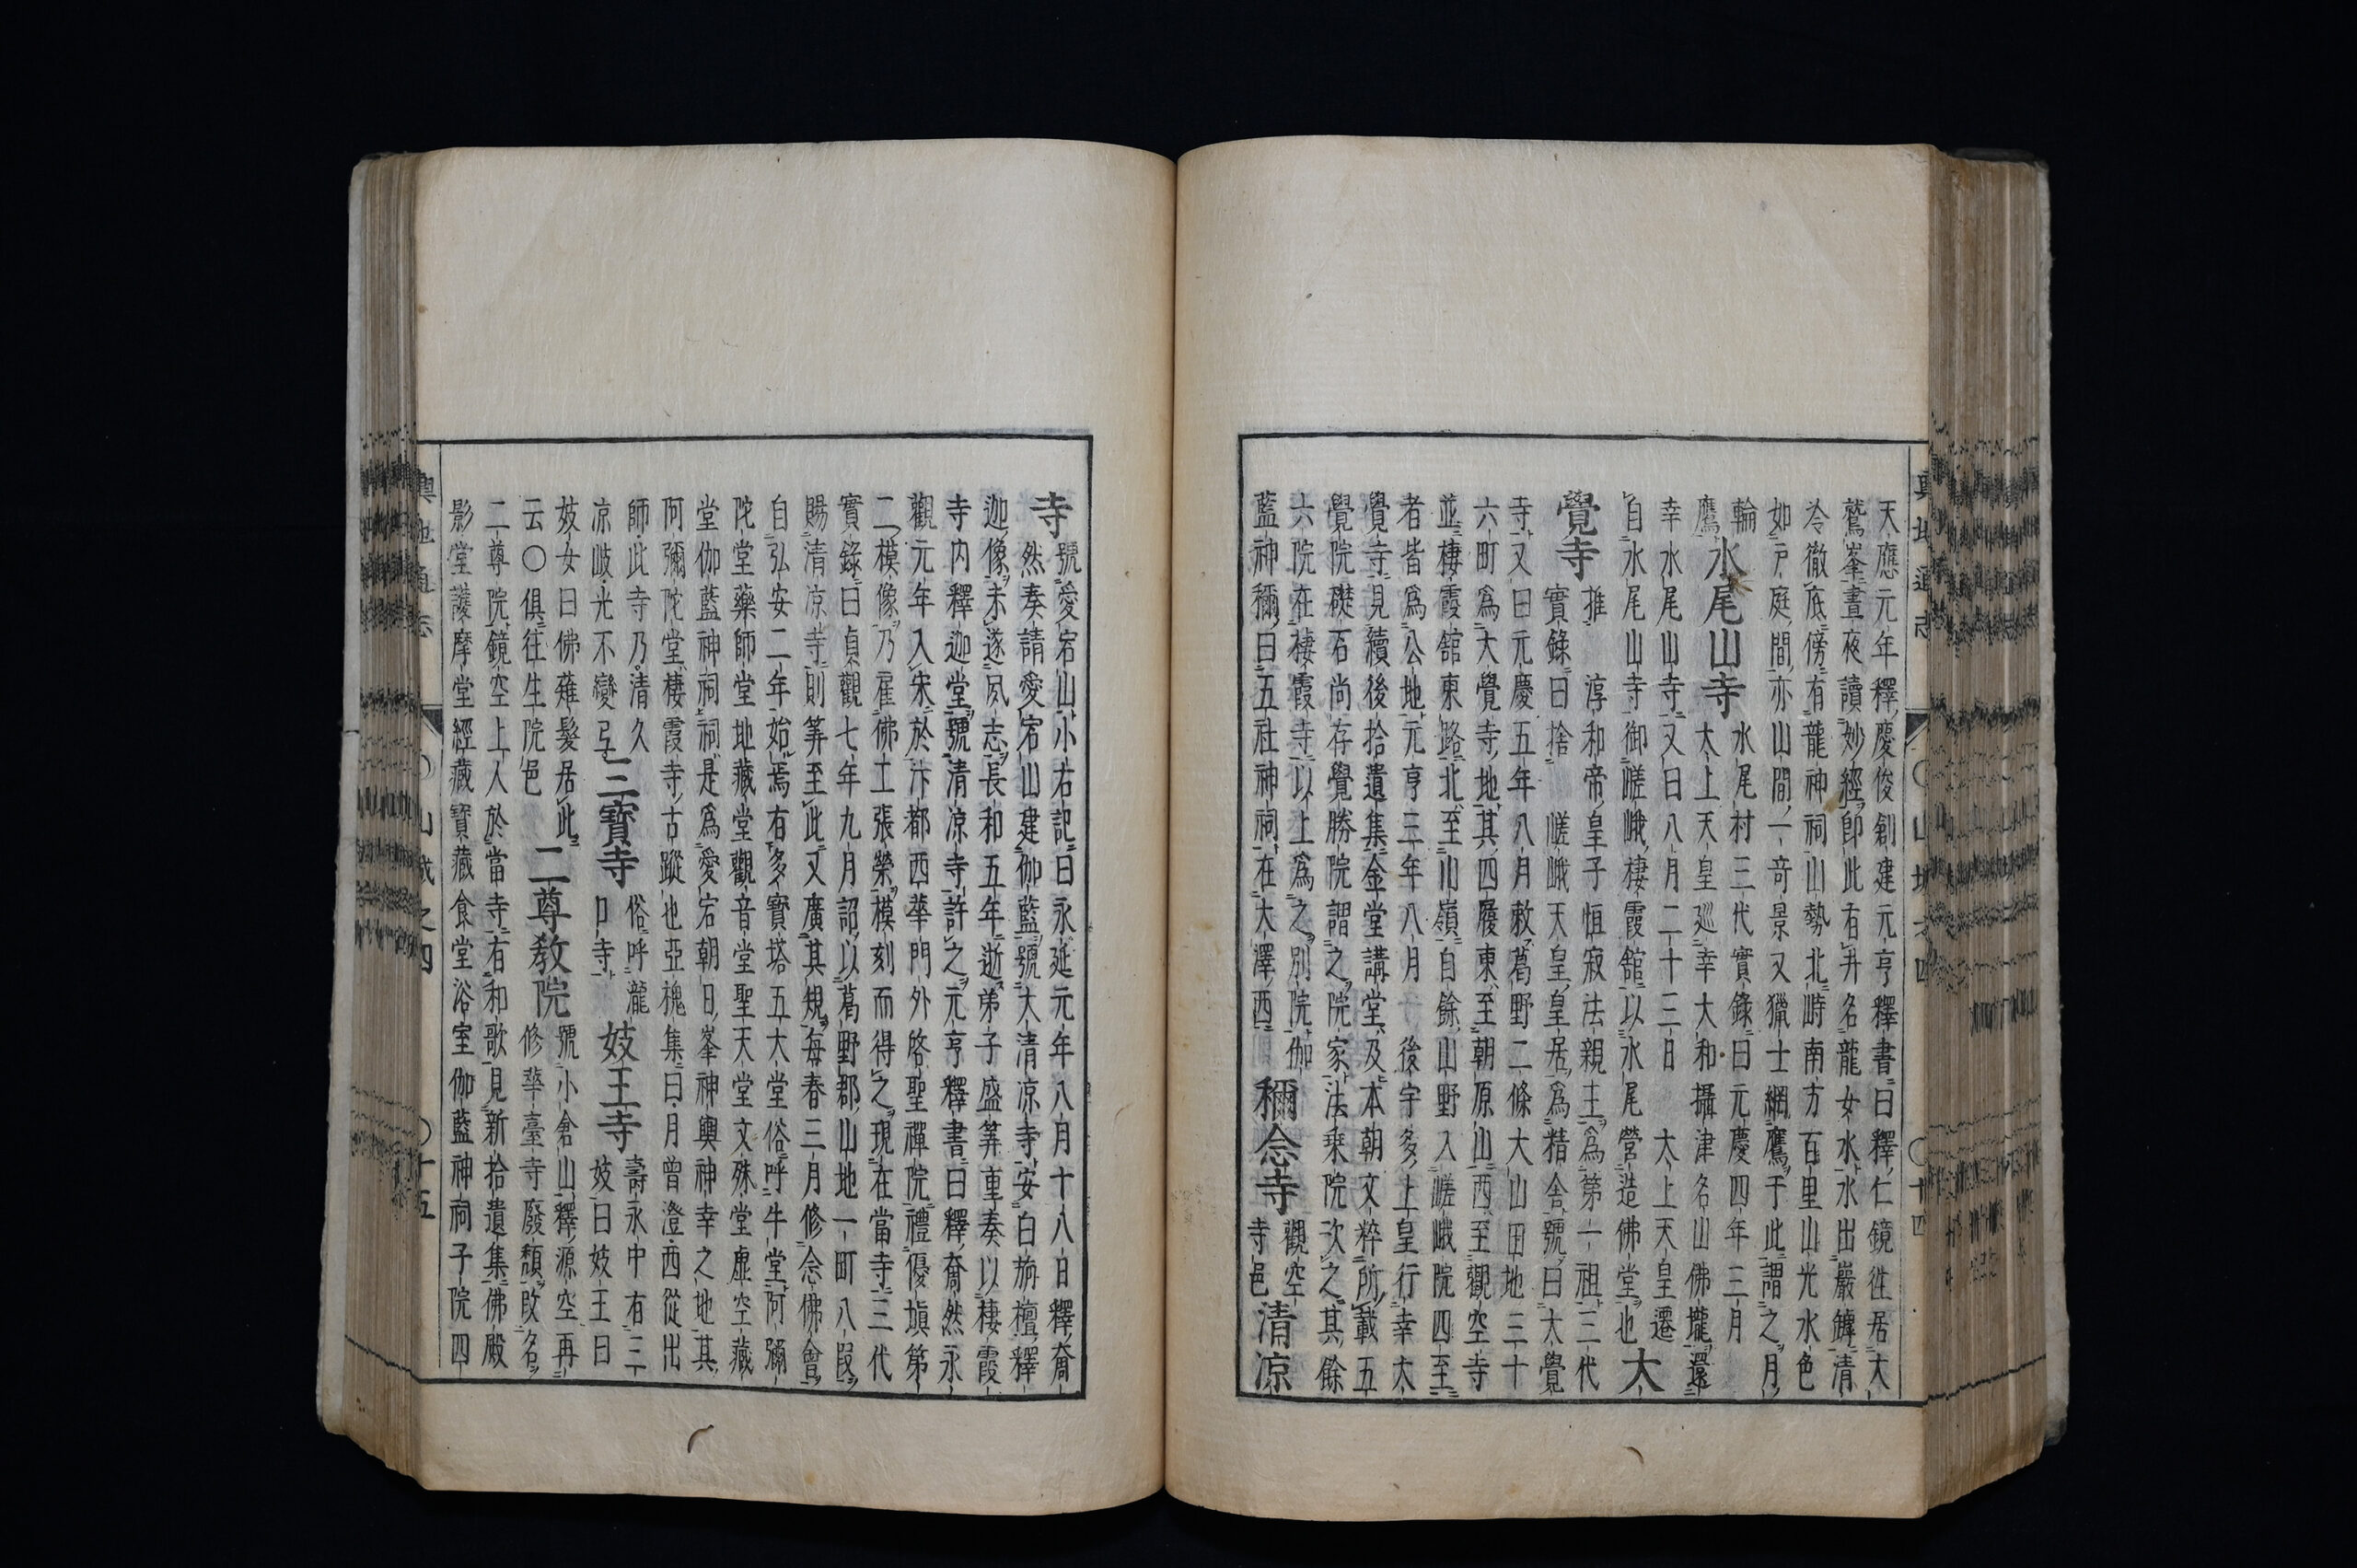 天應元年釋慶俊創建元亨釋書曰釋仁鏡徃居大
鷲峯晝夜讀妙經卽此有井名龍女水水出巖罅清
冷徹底傍有龍神祠山勢北峙南方百里山光水色
如戸庭間亦山間一竒景又獵士網鷹于此謂之月
輪 水尾村三代實錄曰元慶四年三月
鷹 水尾山寺 太上天皇廵幸大和攝津名山佛壠還
幸水尾山寺又曰八月二十三日 太上天皇遷
自水尾山寺御嵯峨棲霞舘以水尾 營造佛堂也 大
覺寺 推 淳和帝皇子恒寂法親王爲第一祖三代
實錄曰捨 嵯峨天皇皇居爲精舎號曰大覺
寺又曰元慶五年八月敕葛野二條大山田地三十
六町爲大覺寺地其四履東至朝原山西至觀空寺
並棲霞舘東路北至山嶺自餘山野入嵯峨院四至
者皆爲公地元亨三年八月 後宇多上皇行幸大
覺寺見續後拾遺集金堂講堂及本朝文粹所載五
覺院礎石尚存覺勝院謂之院家法乘院次之其餘
六院在棲霞寺以上爲之別院伽 觀空
藍神稱曰五社神祠在大澤西 稱念寺 寺邑 清凉
寺 號愛宕山小右記曰永延元年八月十八日釋奝
然奏請愛宕山建伽藍號大清凉寺安白旃檀釋
迦像未遂夙志長和五年逝弟子盛筭重奏以棲霞
寺內釋迦堂號清凉寺許之元亨釋書曰釋奝然永
觀元年入宋於汴都西華門外啓聖禪院禮優塡第
二模像乃雇佛工張榮模刻而得之現在當寺三代
實錄曰貞觀七年九月詔以葛野郡山地一町八段
賜清凉寺則筭至此又廣其規每春三月修念佛會
自弘安二年始焉有多寶塔五大堂俗呼牛堂阿彌
陀堂藥師堂地藏堂觀音堂聖天堂文殊堂虛空藏
堂伽藍神祠祠是爲愛宕朝日峯神輿神幸之地其
阿彌陀堂棲霞寺古蹤也亞槐集曰月曾澄西從出
師此寺乃清久 三寶寺 俗呼瀧 妓王寺 壽永中有三
凉岐光不變乎 口寺 妓曰妓王曰
妓女曰佛薙髮居此 二尊教院 號小倉山釋源空再
云〇俱往生院邑 修華臺寺廢頽改名
二尊院鏡空上人於當寺有和歌見新拾遺集佛殿
影堂護摩堂經藏寶藏食堂浴室伽藍神祠子院四